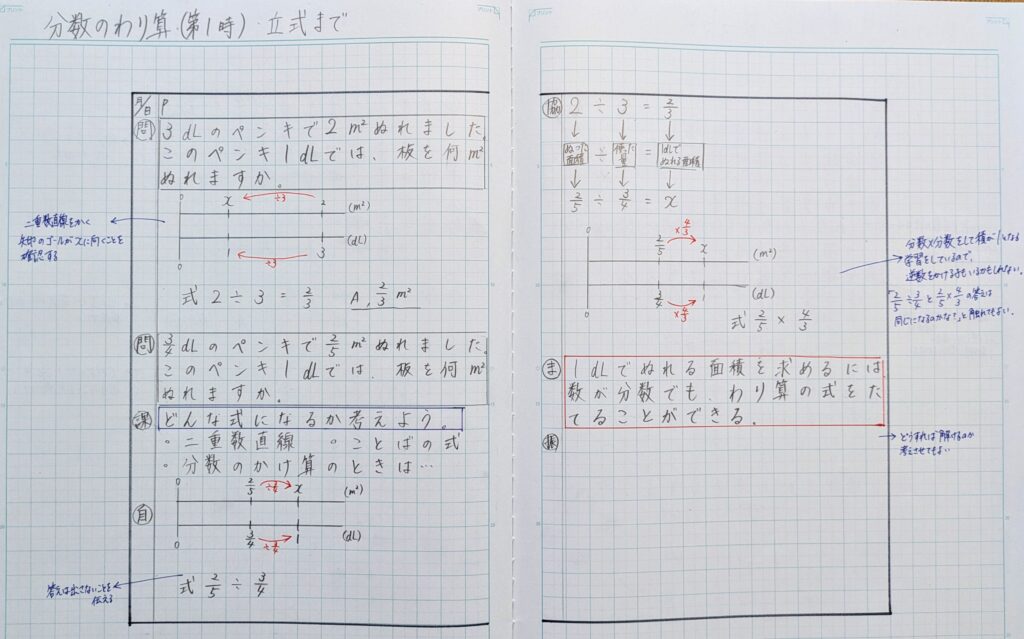 分数のわり算(第1時)・立式まで
月/日 P
問 3dLのペンキで2m²ぬれました。
このペンキ1dLでは、板を何m²
ぬれますか。
0 x ÷3 2 (m²)
0 1 ÷3 3 (dL)
二重数直線をかく
矢印のゴールがxに向くことを
確認する
式 2÷3=2/3 A, 2/3 m²
問 3/4dLのペンキで2/5m²ぬれました。
このペンキ1dLでは、板を何m²
ぬれますか。
課 どんな式になるか考えよう。
・二重数直線 ・ことばの式
・分数のかけ算のときは…
自
0 2/5 ÷3/4 x (m²)
0 3/4 ÷3/4 1 (dL)
答えは出さないことを
伝える
式 2/5÷3/4
協 2÷3=2/3
ぬった面積÷使った量=1dLでぬれる面積
2/5÷3/4=x
0 2/5 ×4/3 x (m²)
0 3/4 ×4/3 1 (dL)
式 2/5×4/3
分数×分数をして積が1となる
学習をしているので、
逆数をかける子もいるかもしれない。
「2/5÷3/4と2/5×4/3の答えは
同じになるのかな?」と触れてもよい。
ま 1dLでぬれる面積を求めるには
数が分数でも、わり算の式をた
てることができる。
振
どうすれば解けるのか
考えさせてもよい